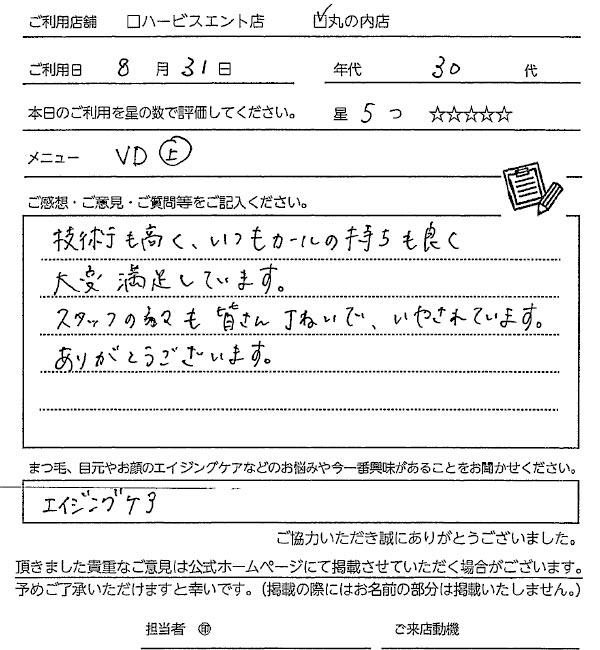 ご利用店舗 □ハービスエント店 ☑丸の内店
ご利用日 8 月 31 日 年代 30 代
本日のご利用を星の数で評価してください。 星 5 つ ☆☆☆☆☆
メニュー VD 上
ご感想・ご意見・ご質問等をご記入ください。
技術も高く、いつもカールの持ちも良く
大変満足しています。
スタッフの方々も皆さん丁ねいで、いやされています。
ありがとうございます。
まつ毛、目元やお顔のエイジングケアなどのお悩みや今一番興味があることをお聞かせください。
エイジングケア
ご協力いただき誠にありがとうございました。
頂きました貴重なご意見は公式ホームページにて掲載させていただく場合がございます。
予めご了承いただけますと幸いです。(掲載の際にはお名前の部分は掲載いたしません。)
担当者 ㊞ ご来店動機